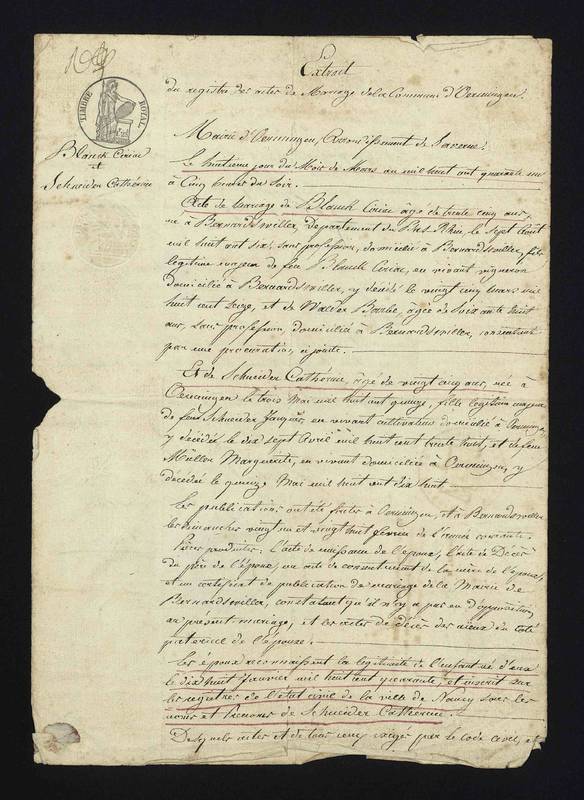 Extrait
du registre des actes de Mariage de la Commune d'Oermingen.
TIMBRE ROYAL
Blanck Ciriac
et
Schneider Cathérine
Mairie d'Oermingen, Arrondissement de Saverne.
Le huitieme jour du Mois de Mars an mil huit cent quarante un
à Cinq heures du Soir.
Acte de Mariage de Blanck Ciriac âgé de trente cinq ans,
né à Bernardswiller, Departement du Bas-Rhin, le Sept Août
mil huit cent six, sans profession, domicilié à Bernardswiller, fils
légitime majeur de feu Blanck Ciriac, en vivant vigneron
domicilié à Bernardswiller, y décédé le vingt cinq Mars mil
huit cent seize, et de Walter Barbe, âgée de soixante huit
ans, sans profession, domicilié à Bernardswiller, consentant
par une procuration, ci jointe.
Et de Schneider Cathérine, âgé de vingt cinq ans, née à
Oermingen le trois Mai mil huit cent quinze, fille légitime majeure
de feu Schneider Jacques, en vivant cultivateur domicilié à Oermingen,
y décédé le dix sept Avril mil huit cent trente huit, et de feue
Müller Marguerite, en vivant domiciliée à Oermingen, y
décédée le quinze Mai mil huit cent dix huit
Les publications ont été faites à Oermingen, et à Bernardswiller
les dimanches vingt un et vingt huit fevrier de l'année courante.
Pièces produites: L'acte de naissance de l'épouse, l'acte de Décès
du père de l'épouse, un acte de consentement de la mère de l'époux,
et un certificat de publication de mariage de la Mairie de
Bernardswiller, constatant qu'il n'y a pas eu d'opposition
au présent mariage, et les actes de décès des aieux du coté
paternel de l'épouse.
Les époux reconnaissent la légitimité de l'enfant né d'eux
le dix huit Janvier mil huit cent quarante et inscrit sur
les registres de l'état civil de la ville de Nancy sous les
noms et Prenoms de Schneider Cathérine.
Desquels actes et de tous ceux exigés par le Code civil, et